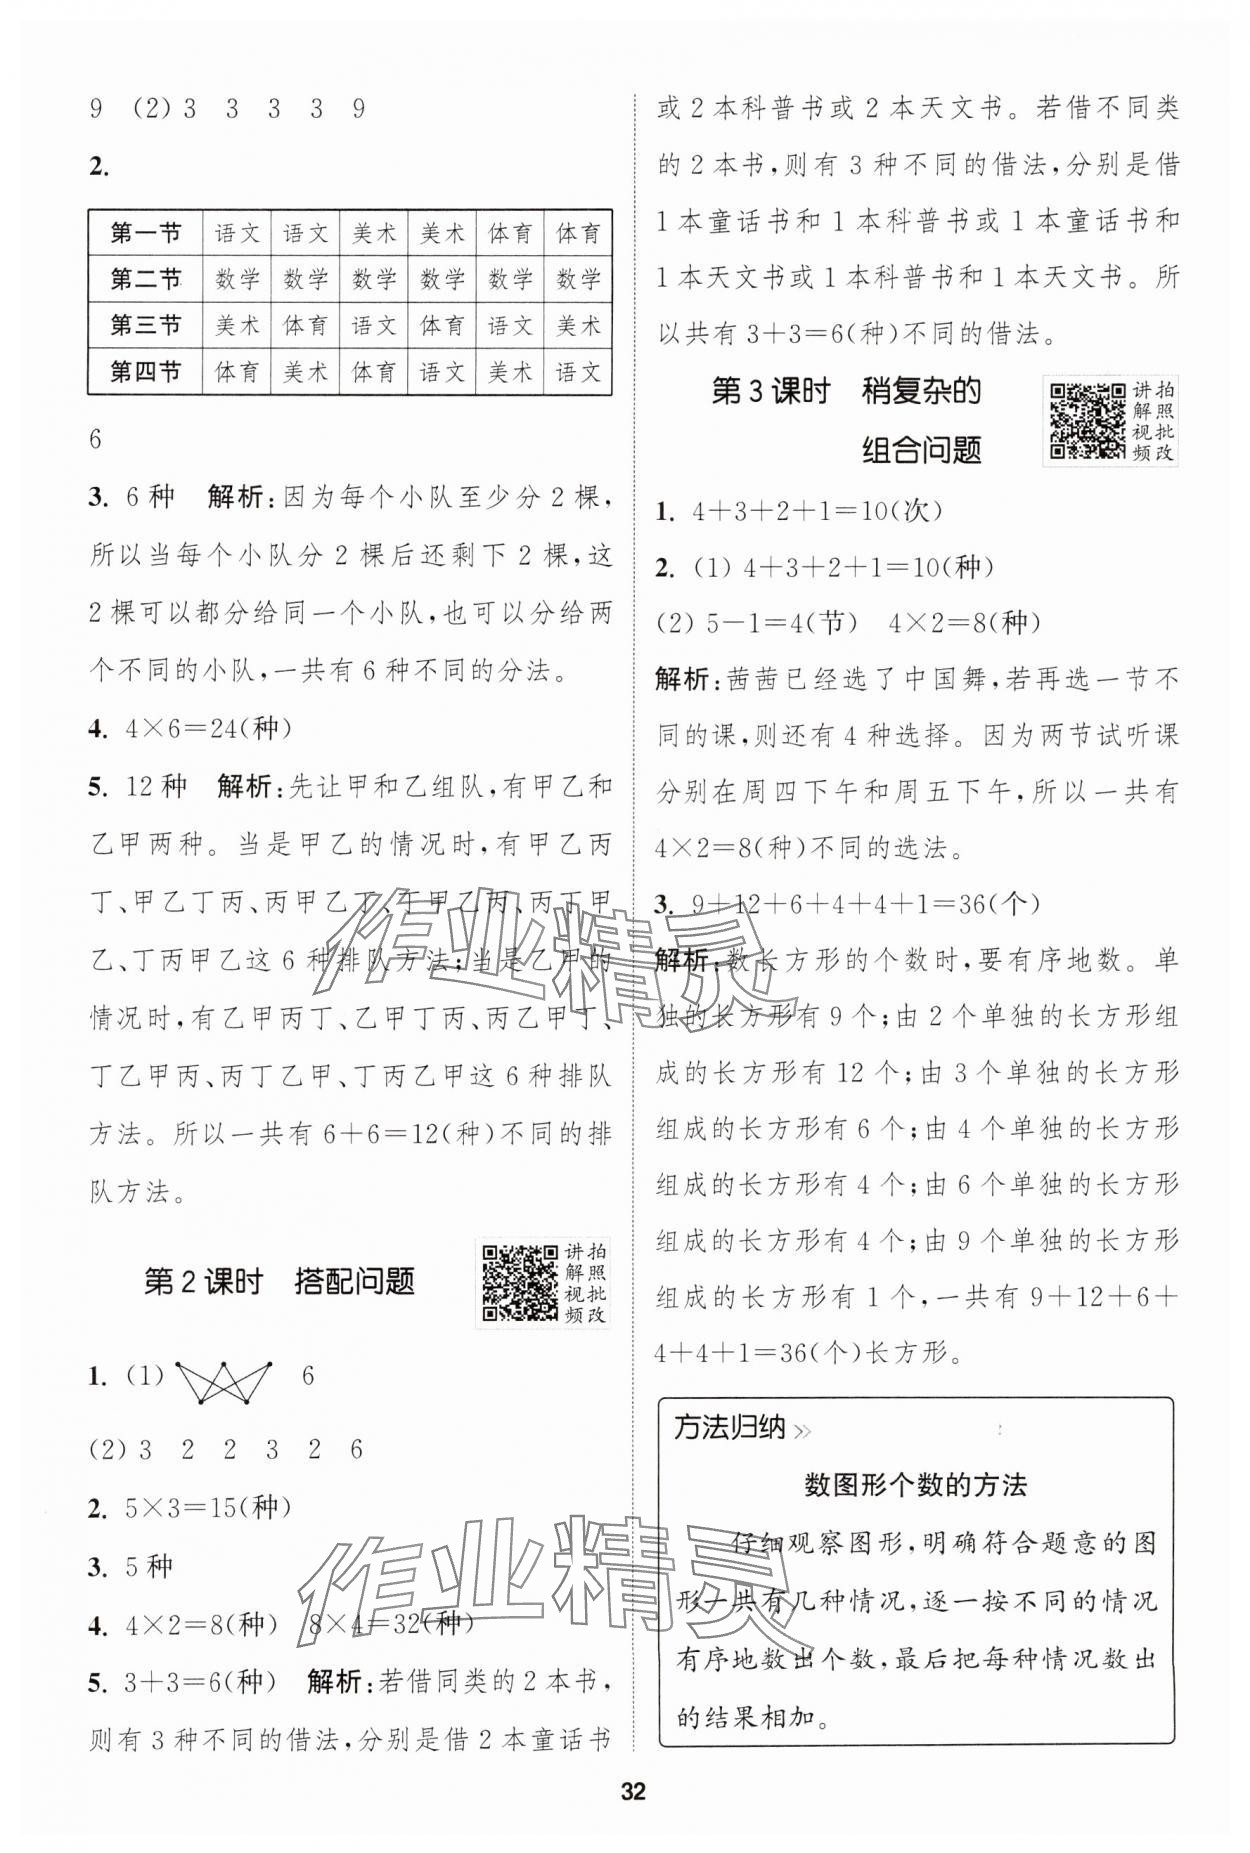 9 (2)3 3 3 3 9
2.
第一节 语文 语文 美术 美术 体育 体育
第二节 数学 数学 数学 数学 数学 数学
第三节 美术 体育 语文 体育 语文 美术
第四节 体育 美术 体育 语文 美术 语文
6
3. 6种 解析:因为每个小队至少分2棵,
所以当每个小队分2棵后还剩下2棵,这
2棵可以都分给同一个小队,也可以分给两
个不同的小队,一共有6种不同的分法。
4. 4×6=24(种)
5. 12种 解析:先让甲和乙组队,有甲乙和
乙甲两种。当是甲乙的情况时,有甲乙丙
丁、甲乙丁丙、丙甲乙丁、丁甲乙丙、丙丁甲
乙、丁丙甲乙这6种排队方法;当是乙甲的
情况时,有乙甲丙丁、乙甲丁丙、丙乙甲丁、
丁乙甲丙、丙丁乙甲、丁丙乙甲这6种排队
方法。所以一共有6+6=12(种)不同的排
队方法。
第2课时 搭配问题
讲拍
解照
视批
频改
1. (1) 6
(2)3 2 2 3 2 6
2. 5×3=15(种)
3. 5种
4. 4×2=8(种) 8×4=32(种)
5. 3+3=6(种) 解析:若借同类的2本书,
则有3种不同的借法,分别是借2本童话书
或2本科普书或2本天文书。若借不同类
的2本书,则有3种不同的借法,分别是借
1本童话书和1本科普书或1本童话书和
1本天文书或1本科普书和1本天文书。所
以共有3+3=6(种)不同的借法。
第3课时 稍复杂的
组合问题
讲拍
解照
视批
频改
1. 4+3+2+1=10(次)
2. (1) 4+3+2+1=10(种)
(2) 5-1=4(节) 4×2=8(种)
解析:茜茜已经选了中国舞,若再选一节不
同的课,则还有4种选择。因为两节试听课
分别在周四下午和周五下午,所以一共有
4×2=8(种)不同的选法。
3. 9+12+6+4+4+1=36(个)
解析:数长方形的个数时,要有序地数。单
独的长方形有9个;由2个单独的长方形组
成的长方形有12个;由3个单独的长方形
组成的长方形有6个;由4个单独的长方形
组成的长方形有4个;由6个单独的长方形
组成的长方形有4个;由9个单独的长方形
组成的长方形有1个,一共有9+12+6+
4+4+1=36(个)长方形。
方法归纳
数图形个数的方法
仔细观察图形,明确符合题意的图
形一共有几种情况,逐一按不同的情况
有序地数出个数,最后把每种情况数出
的结果相加。
作业精灵
作业精灵
32